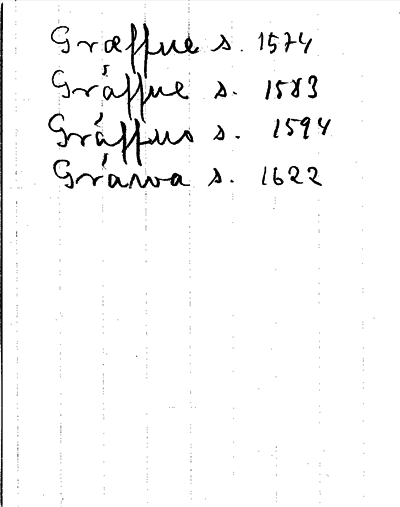 Græffue s. 1574
Gräffue s. 1583
Gråffuo s. 1594
Gråwa s. 1622